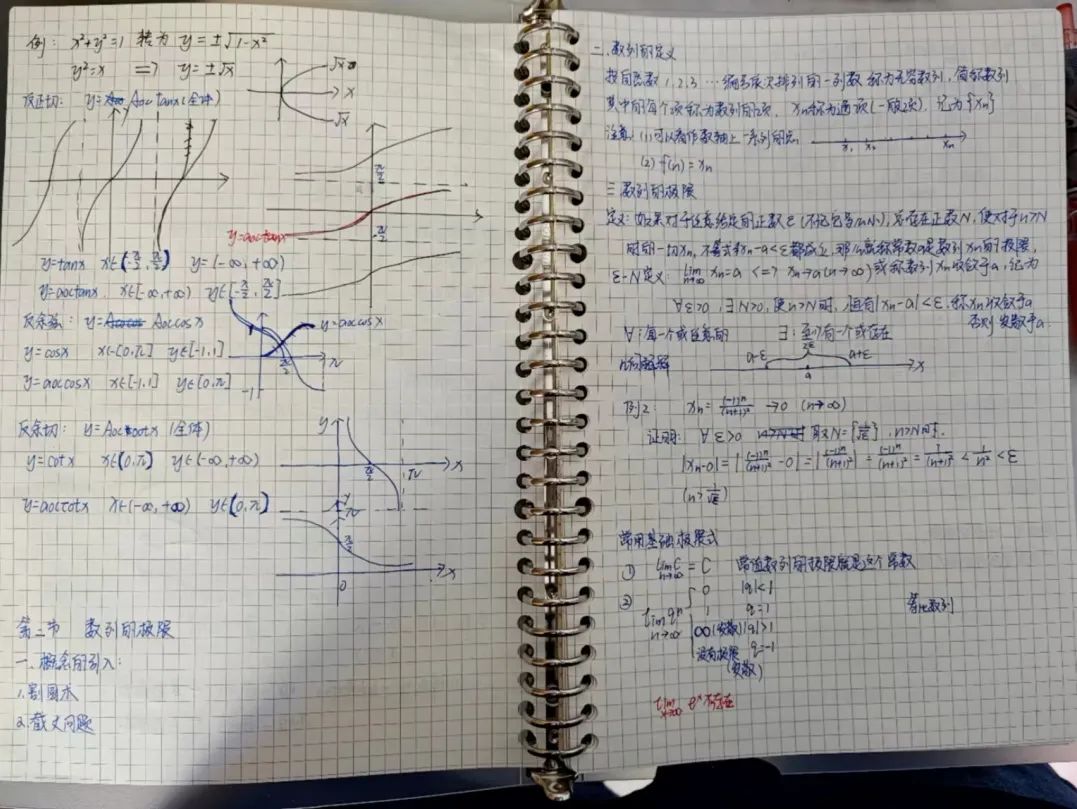 例: x²+y²=1 转为 y=±√1-x²
y²=x ⇒ y=±√x
√x
x
-√x
反正切: y=Aoctanx(全体)
π/2
-π/2
y=aoctanx
y=tanx x∈(-π/2, π/2) y=(-∞,+∞)
y=aoctanx x∈[-∞,+∞) y∈[-π/2, π/2]
反余弦: y=Aoccosx
y=aoccosx
y=cosx x∈[0,π] y∈[-1,1]
π/2
π
y=aoccosx x∈[-1,1] y∈[0,π]
-1
反余切: y=Aoccotx (全体)
y
x
y=cotx x∈(0,π) y∈(-∞,+∞)
π/2
π
y=aoccotx x∈(-∞,+∞) y∈(0,π)
y
π
π/2
x
0
第二节 数列的极限
一.概念的引入:
1.割圆术
2.截丈问题
二.数列的定义
按自然数1,2,3…编号依次排列的一列数称为无穷数列,简称数列
其中的每个数称为数列的项, xn称为通项(一般项). 记为{xn}
注意: (1)可以看作数轴上一系列的点
x₁ x₂ xn
(2) f(n)=xn
三.数列的极限
定义: 如果对于任意给定的正数ε(不论它多么小),总存在正数N,使对于n>N
时的一切xn,不等式|xn-a|<ε都成立,那么就称常数a是数列xn的极限,
ε-N定义: lim n→∞ xn=a <=> xn→a(n→∞)或称数列xn收敛于a,记为
∀ε>0, ∃N>0, 使n>N时, 恒有|xn-a|<ε. 称xn收敛于a
否则发散于a.
∀:每一个或任意的 ∃: 至少有一个或存在
几何解释
a-ε 2ε a+ε
a
x
例2: xn=(-1)ⁿ/(n+1)² →0 (n→∞)
证明: ∀ε>0 取N=[1/√ε], n>N时.
|xn-0|=|(-1)ⁿ/(n+1)²-0|=|(-1)ⁿ/(n+1)²|=
<1/n²<ε
(n>1/√ε)
常用基础极限式
① lim n→∞ C=C 常值数列的极限就是这个常数
② lim n→∞ qⁿ { 0 |q|<1
1 q=1
∞(发散) |q|>1
没有极限 q=-1
(发散)
等比数列
lim x→∞ eˣ不存在